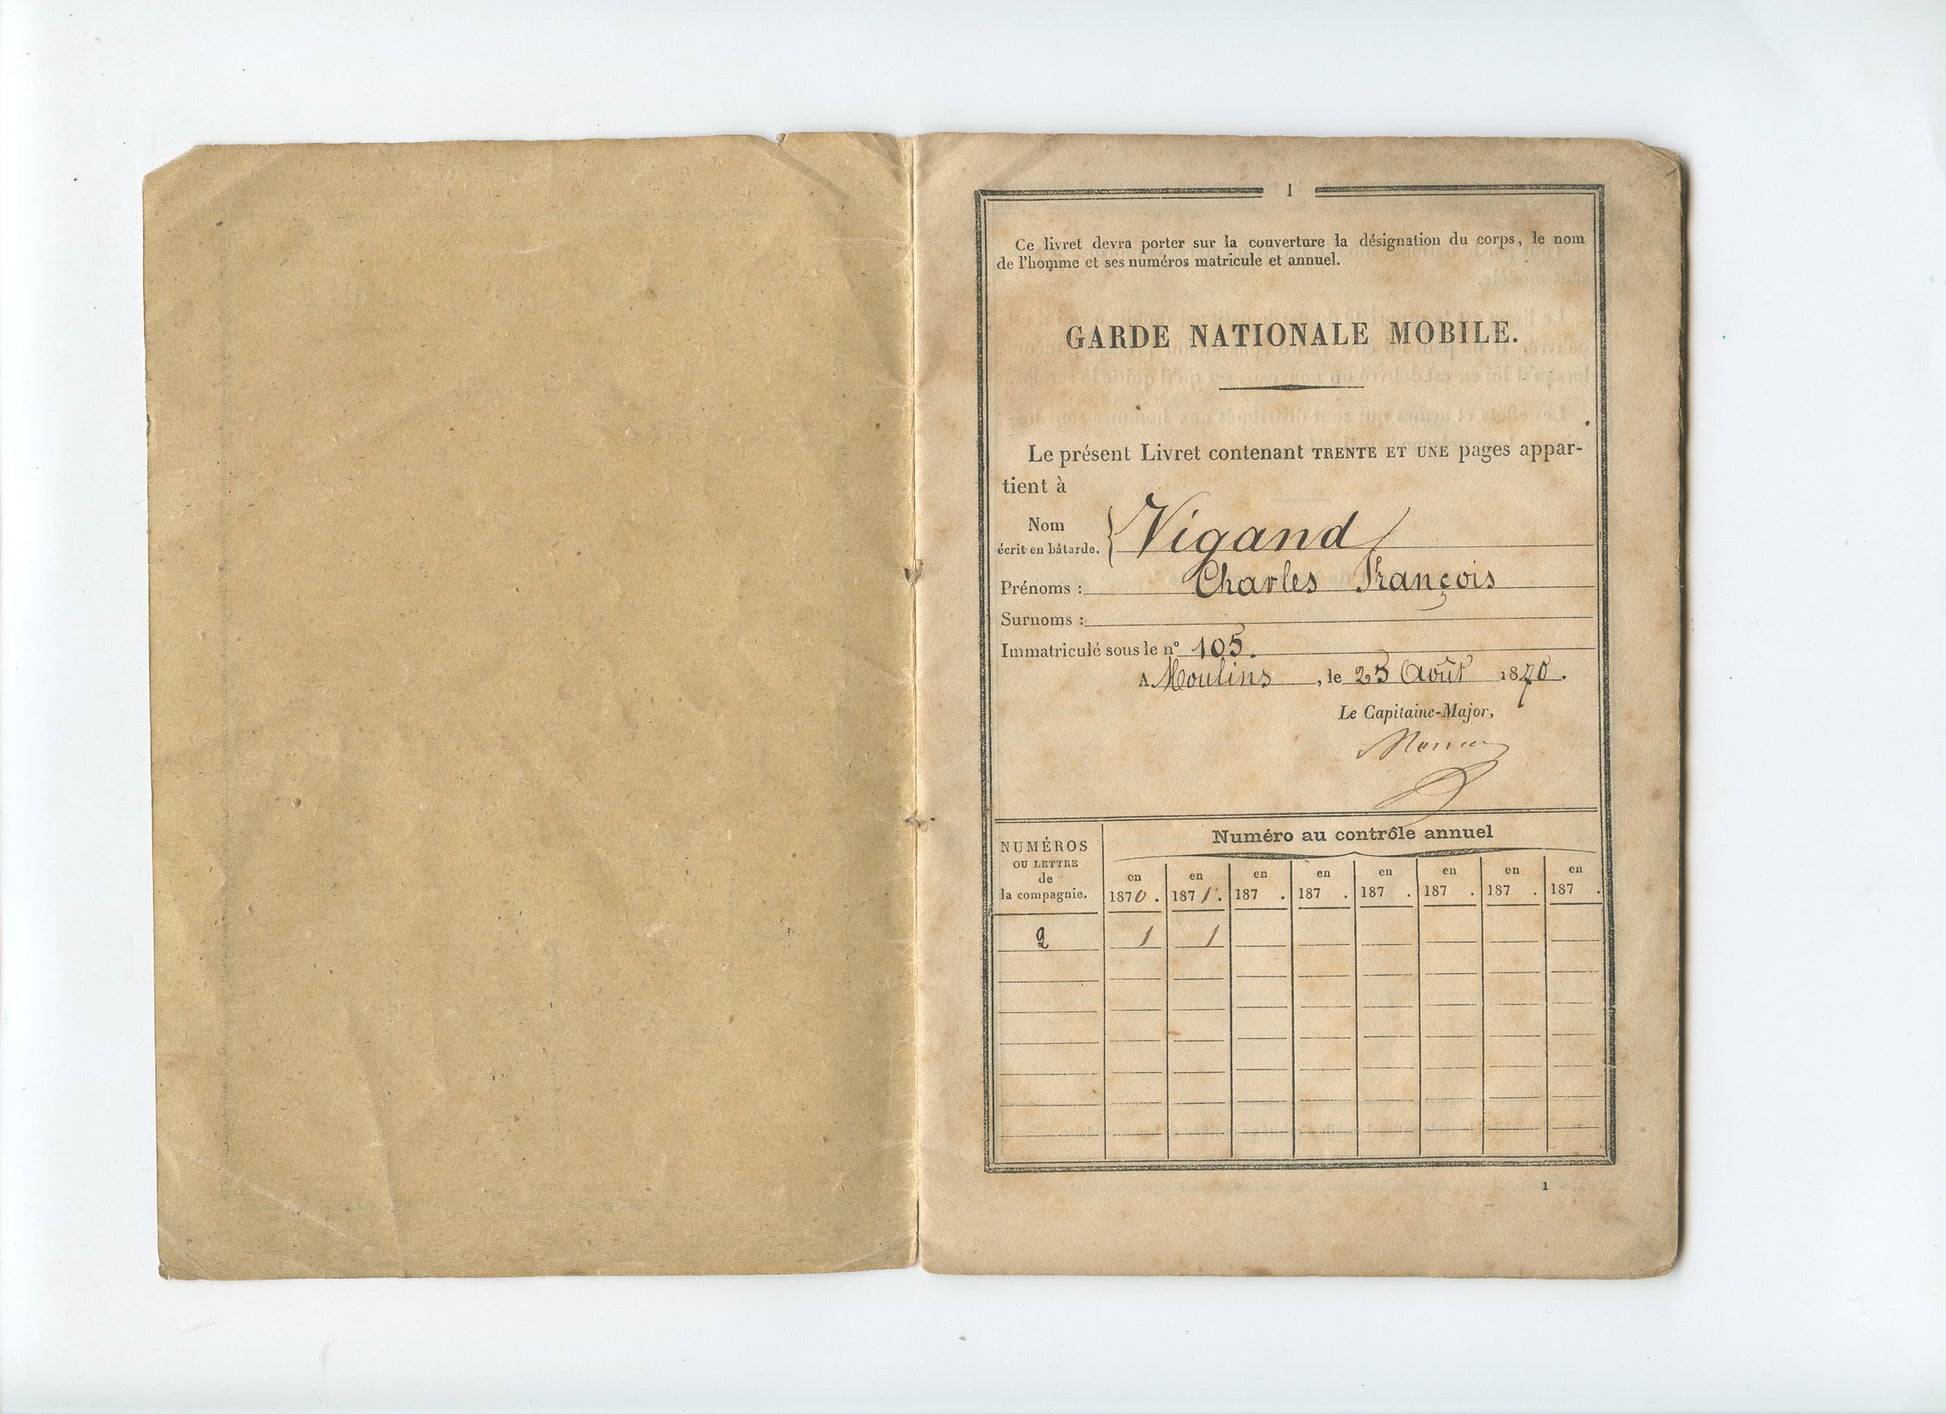 1
Ce livret devra porter sur la couverture la désignation du corps, le nom
de l'homme et ses numéros matricule et annuel.
GARDE NATIONALE MOBILE.
Le présent Livret contenant TRENTE ET UNE pages appar-
tient à
Nom
écrit en bâtarde.
Vigand
Prénoms : Charles François
Surnoms :
Immatriculé sous le n° 105.
A Moulins, le 23 Août 1870.
Le Capitaine-Major,
NUMÉROS
OU LETTRE
de
la compagnie.
Numéro au contrôle annuel
en en en en en en en en
1870. 1871. 187 . 187 . 187 . 187 . 187 . 187 .
2 1 1
1